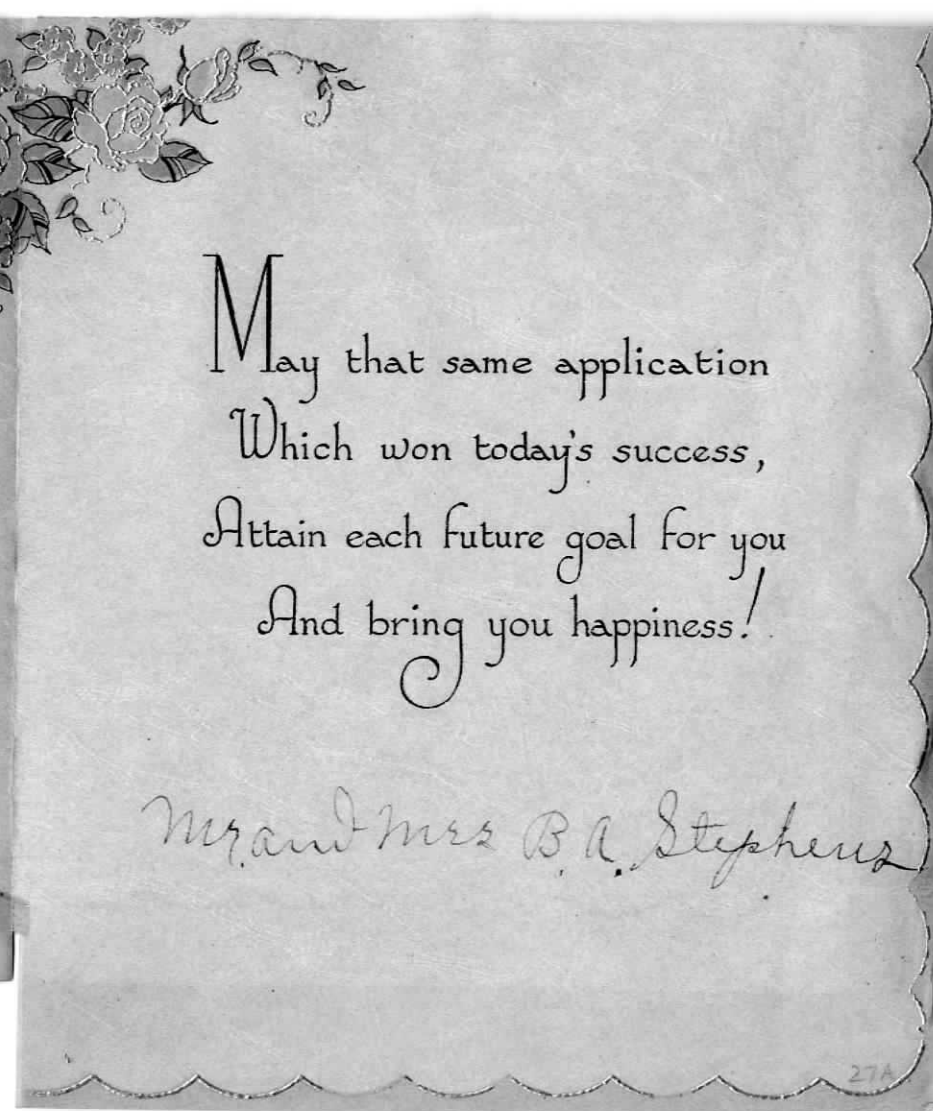 May that same application
Which won today's success,
Attain each future goal for you
And bring you happiness!
Mr. and Mrs B. A. Stephens
27A